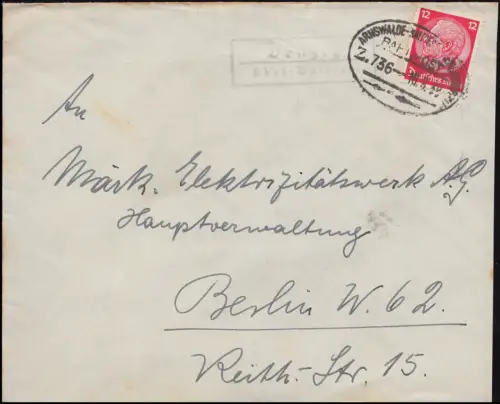 ARNSWALDE-
BAHNPOST
Z.736
12 12
An
Märk. Elektrizitätswerk A.G.
Hauptverwaltung
Berlin W. 62.
Keith-Str. 15.